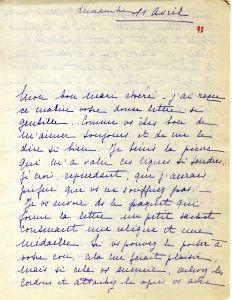 Dimanche 11 Avril
93
Mon bon Marc chéri - j'ai reçu
ce matin votre bonne lettre si
gentille. Comme vs êtes bon de
m'aimer toujours et de me le
dire si bien. Je bénis la pierre
qui m'a valu ces lignes si tendres,
j'crois, cependant, que j'aurais
préféré que vs ne souffriez pas. -
Je vs envoie ds le paquet qui
forme la lettre un petit sachet
contenant une relique et une
médaille. Si vs pouvez le porter à
votre cou, cela me ferait plaisir,
mais si cela vs ennuie, enlevez les
cordons et attachez le après vs